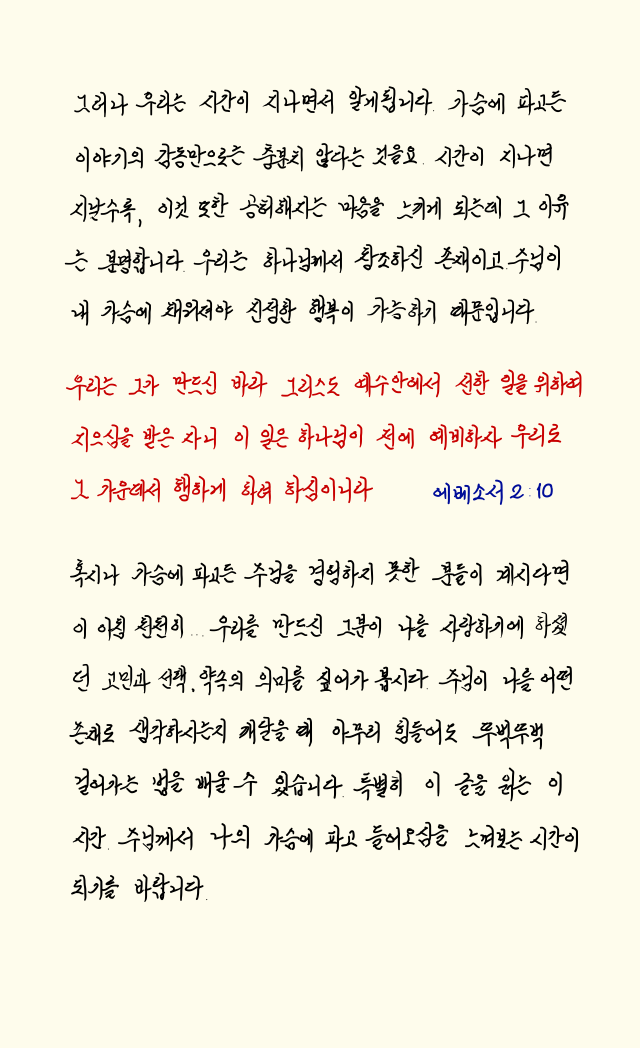 그러나 우리는 시간이 지나면서 알게됩니다. 가슴에 파고든
이야기의 감동만으로는 충분치 않다는 것을요. 시간이 지나면
지날수록, 이것 또한 공허해지는 마음을 느끼게 되는데 그 이유
는 분명합니다. 우리는 하나님께서 창조하신 존재이고. 주님이
내 가슴에 채워져야 진정한 행복이 가능하기 때문입니다.
우리는 그가 만드신 바라 그리스도 예수안에서 선한 일을 위하여
지으심을 받은 자니 이 일은 하나님이 전에 예비하사 우리로
그 가운데서 행하게 하려 하심이니라 에베소서 2:10
혹시나 가슴에 파고든 주님을 경험하지 못한 분들이 계시다면
이 아침 찬찬히... 우리를 만드신 그분이 나를 사랑하기에 하셨
던 고민과 선택, 약속의 의미를 짚어가 봅시다. 주님이 나를 어떤
존재로 생각하시는지 깨달을 때 아무리 힘들어도 뚜벅뚜벅
걸어가는 법을 배울 수 있습니다. 특별히 이 글을 읽는 이
시간. 주님께서 나의 가슴에 파고 들어오심을 느껴보는 시간이
되기를 바랍니다.